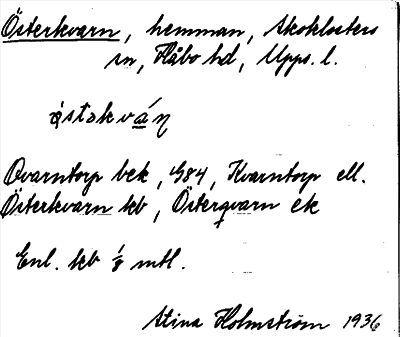 Österkvarn, hemman, Skoklosters
sn, Håbo hd, Upps. l.
östəkvá̱ɳ
Qvarntorp bek, G84, Kvarntorp ell.
Österkvarn kb, Österqvarn ek
Enl. kb ⅛ mtl.
Stina Holmström 1936